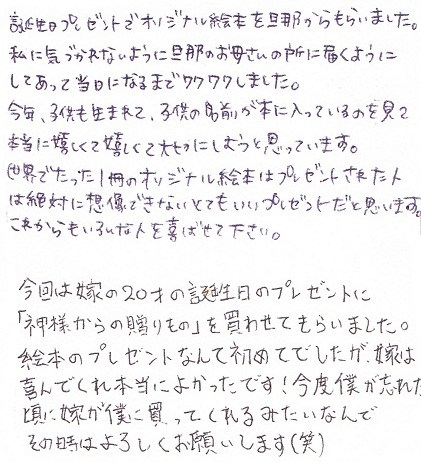 誕生日プレゼントでオリジナル絵本を旦那からもらいました。
私に気づかれないように旦那のお母さんの所に届くように
してあって当日になるまでワクワクしました。
今年、子供も生まれて、子供の名前が本に入っているのを見て
本当に嬉しくて嬉しくて大切にしようと思っています。
世界でたった1冊のオリジナル絵本はプレゼントされた人
は絶対に想像できないとてもいいプレゼントだと思います。
これからもいろいろな人を喜ばせて下さい。
今回は嫁の20才の誕生日のプレゼントに
「神様からの贈りもの」を買わせてもらいました。
絵本のプレゼントなんて初めてでしたが、嫁は
喜んでくれ本当によかったです!今度僕が忘れた
頃に嫁が僕に買ってくれるみたいなんで
その時はよろしくお願いします(笑)